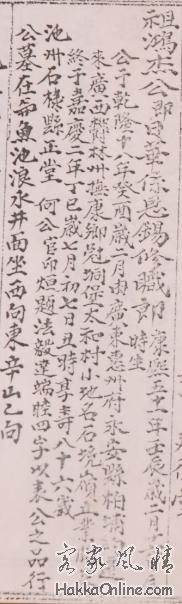 祖鴻杰公即日華保恩錫修職郎 康熙五十一年壬辰歲二月
時生
公于乾隆十八年癸酉歲二月由廣東惠州府永安縣柏埔
來廣西鬱林州撫康鄉 洞堡太和村小地名石
終于嘉慶二年丁巳歲七月初七日丑時享壽八十六歲
池州石棣縣正堂 何公官印烜題法毅達端睦四字以表公之品行
公墓在 魚池浪水井面坐西向東辛山乙向
客家風情
HakkaOnline.com